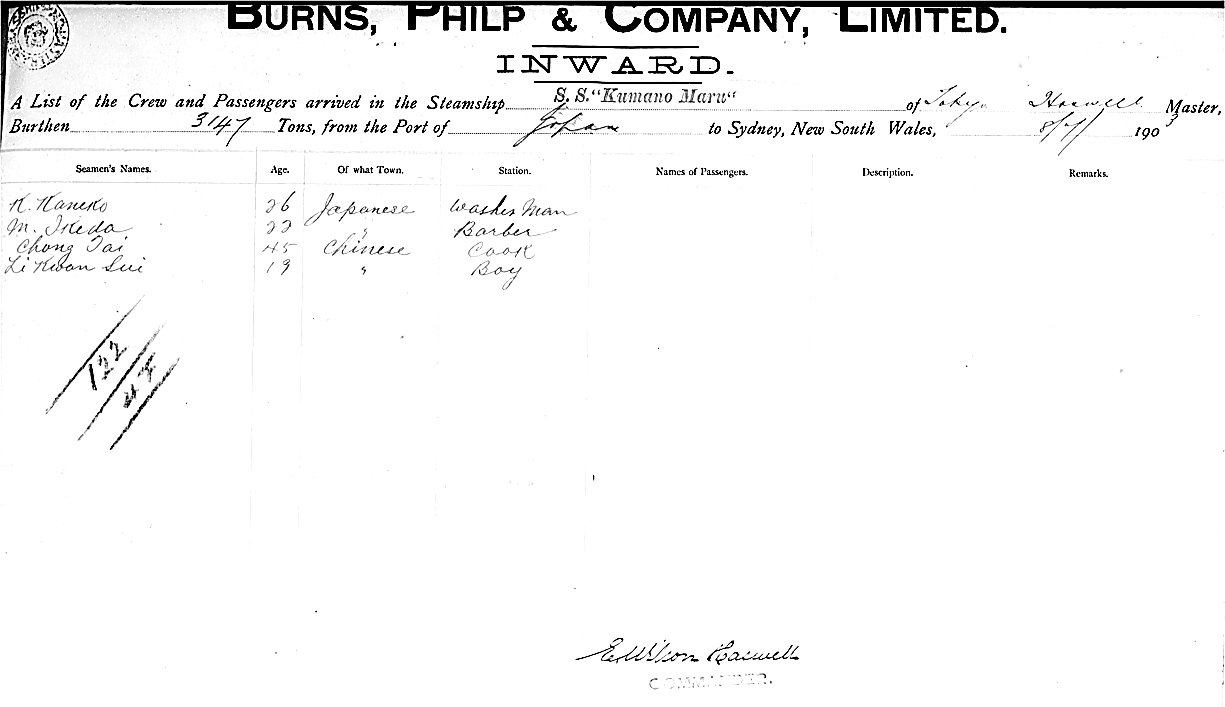 BURNS, PHILP & COMPANY, LIMITED.
INWARD.
A List of the Crew and Passengers arrived in the Steamship S. S. "Kumano Maru" of Haswell Master,
Burthen 3147 Tons, from the Port of Japan to Sydney, New South Wales, 8/7/ 1903
Seamen's Names. Age. Of what Town. Station. Names of Passengers. Description. Remarks.
K. Kaneko 26 Japanese Washer Man
M. Ikeda 22 " Barber
Chong Tai 45 Chinese Cook
Li Kwan Sui 19 " Boy
122
E Wilson Haswell
COMMANDER.